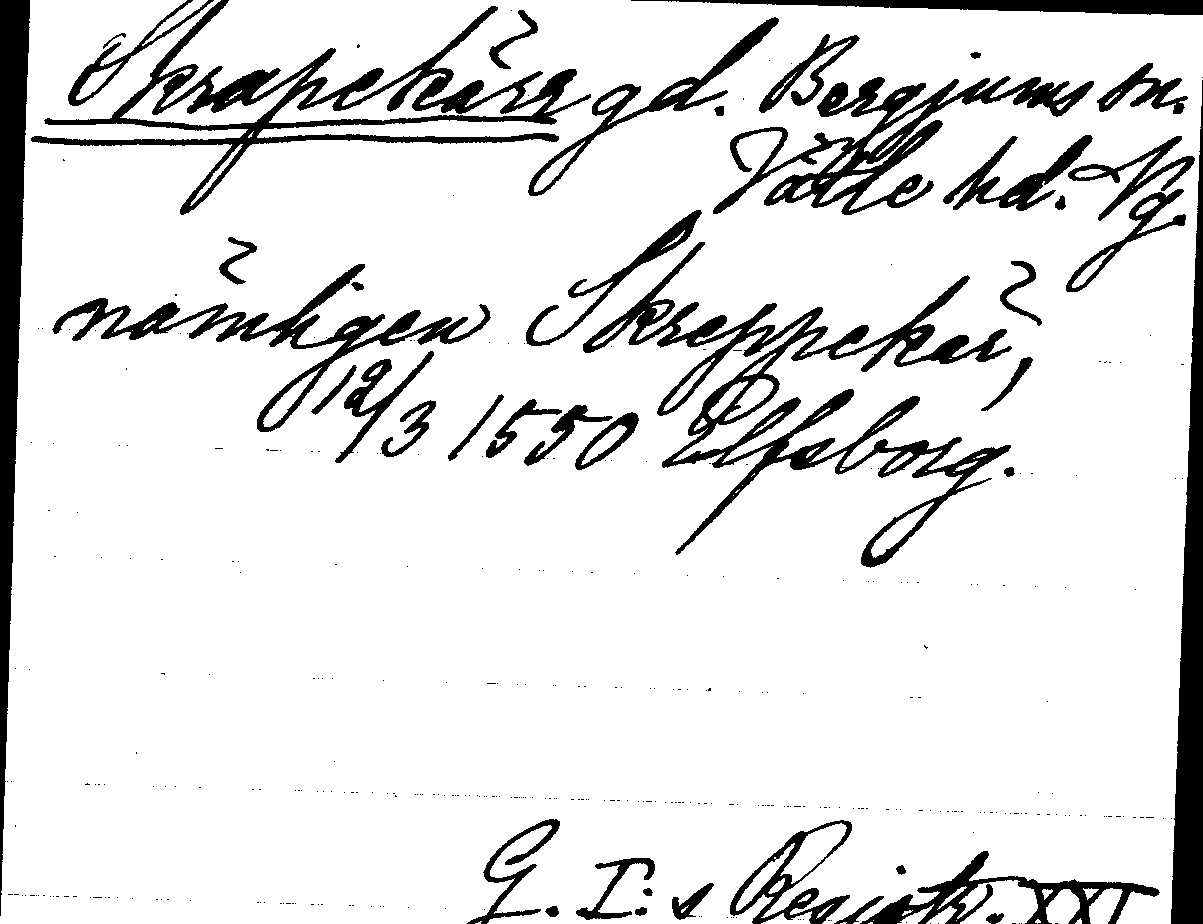 Skrapekärr gd. Bergjums sn.
Vättle hd. Vg.
nämligen Skreppekär,
12/3 1550 Elfsborg.
G. I:s Registr. XXI